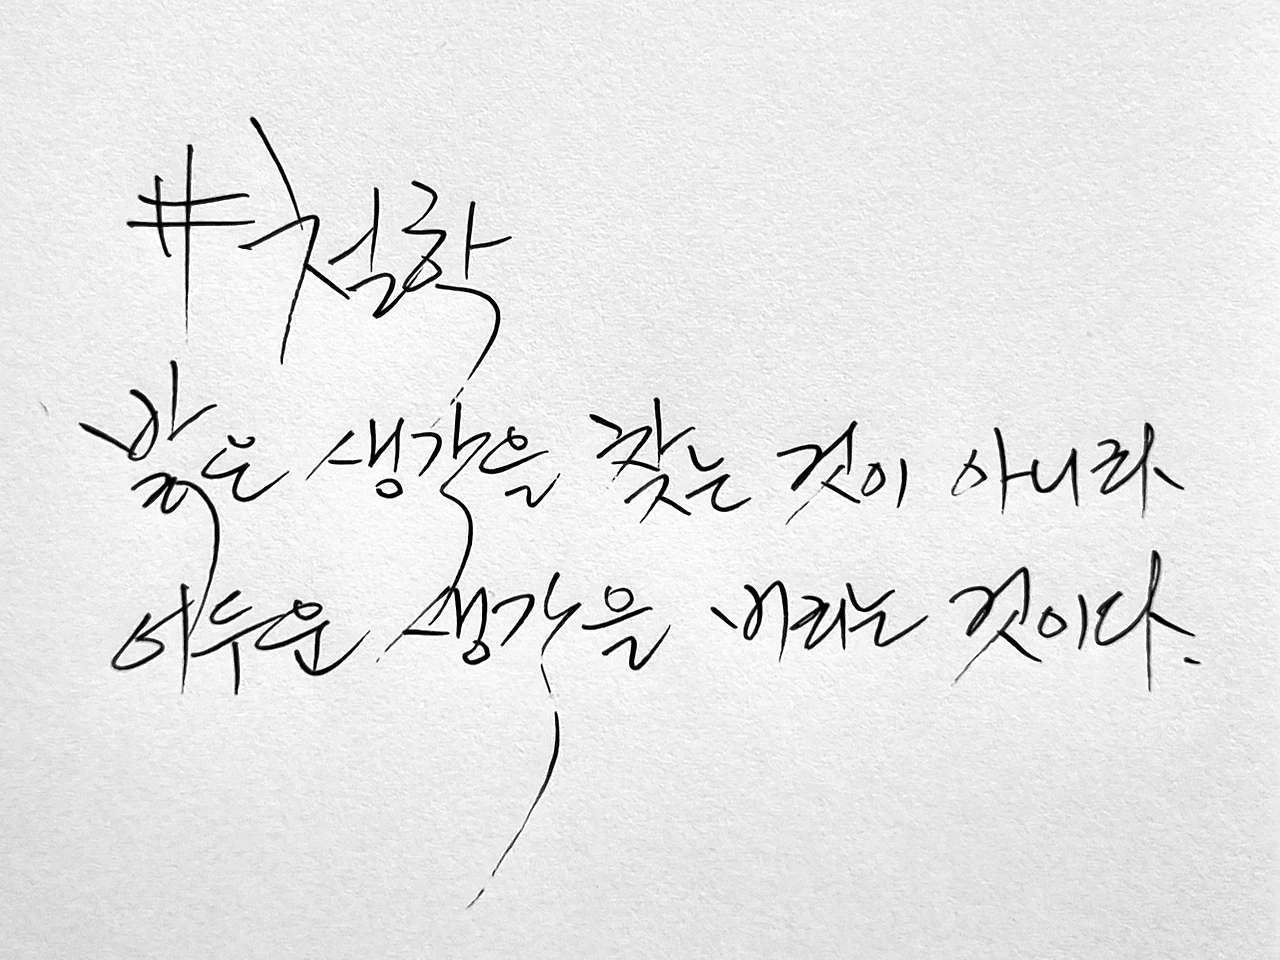 #철학
밝은 생각을 찾는 것이 아니라
어두운 생각을 버리는 것이다.